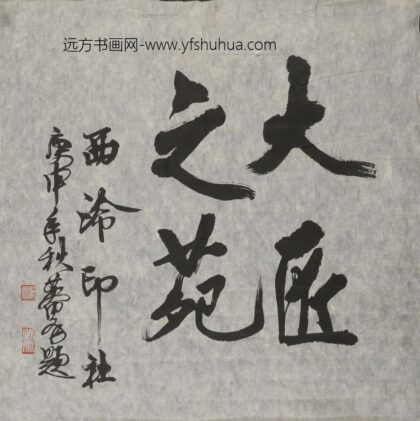 远方书画网-www.yfshuhua.com
大匠
之苑
西泠印社
庚申年秋黄苗子题